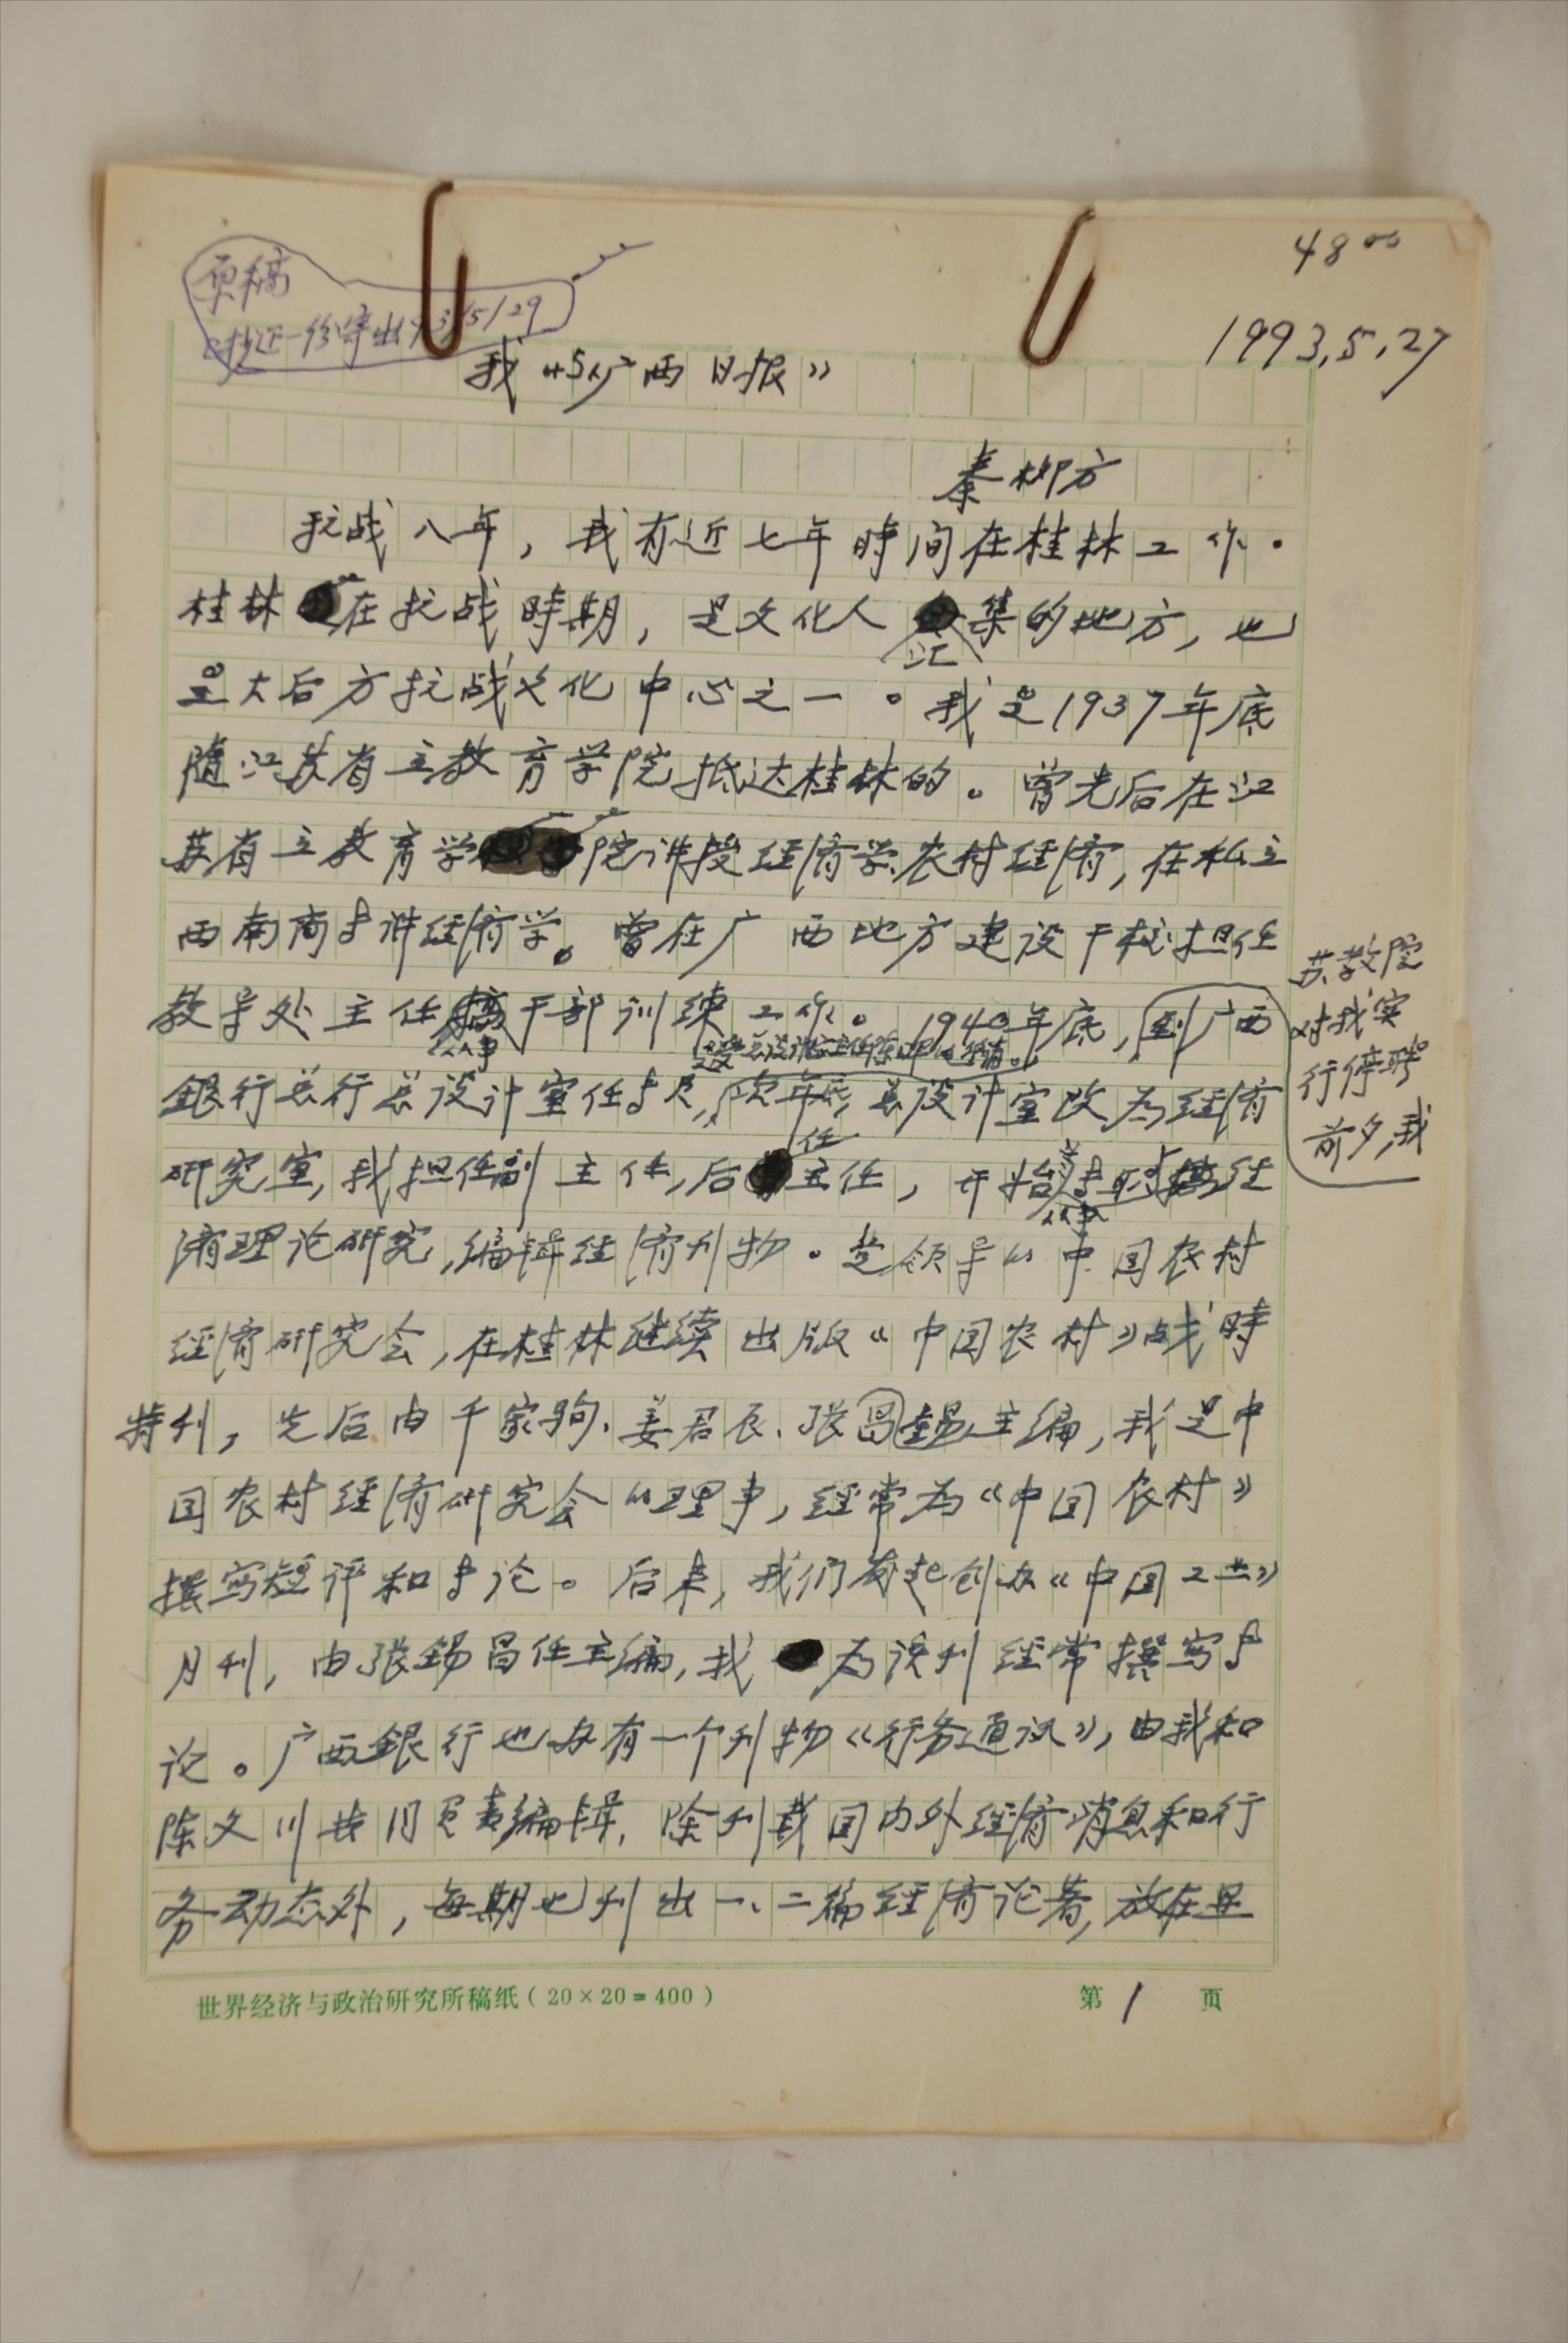 原稿
抄正一份寄出93/5/29
4800
1993.5.27
我与《广西日报》
秦柳方
抗战八年，我有近七年時间在桂林工作。
桂林在抗战時期，是文化人汇集的地方，也
是大后方抗战文化中心之一。我是1937年底
随江苏省立教育学院抵达桂林的。曾先后在江
苏省立教育学院讲授经济学、农村经济，在私立
西南商专讲经济学。曾在广西地方建设干校担任
教导处主任从事干部训练工作。1940年底，到广西
苏教院
对我实
行停聘
前夕，我
受总设计室主任
銀行总行总设计室任专员，次年底，总设计室改为经济
研究室，我担任副主任，后任主任，开始从事经
济理论研究，编辑经济刊物。党领导的中国农村
经济研究会，在桂林继续出版《中国农村》战時
特刊，先后由千家驹、姜君辰、张锡昌主编，我是中
国农村经济研究会的理事，经常为《中国农村》
撰写短评和专论。后来，我们发起创办《中国工业》
月刊，由张锡昌任主编，我为该刊经常撰写专
论。广西銀行也办有一个刊物《行务通讯》，由我和
陈文川共同负责编辑，除刊载国内外经济消息和行
务动态外，每期也刊出一、二篇经济论著，放在显
世界经济与政治研究所稿纸（20×20=400）
第1页